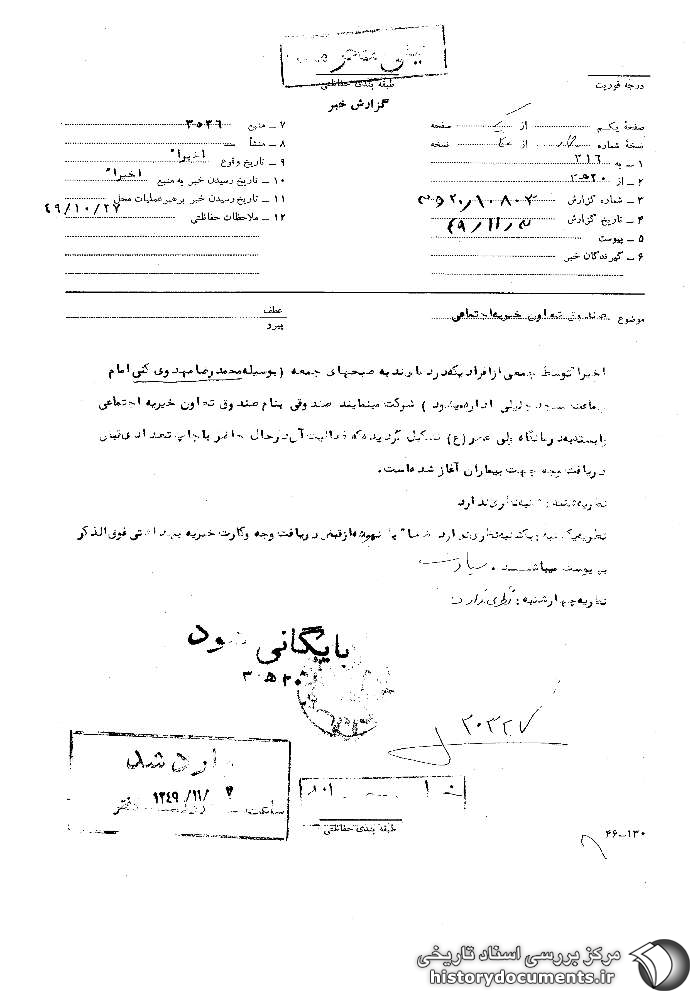 خیلی محرمانه
طبقه بندی حفاظتی
درجه فوریت
گزارش خبر
صفحهٔ یکم از یک صفحه
نسخهٔ شماره از نسخه
۱ ــ به ۳۱۶
۲ ــ از ۲۰ه۳
۳ ــ شماره گزارش ۲۰/۱۰۸۰۲ه۳
۴ ــ تاریخ گزارش ۴۹/۱۱/۳
۵ ــ پیوست
۶ ــ گیرندگان خبر
۷ ــ منبع ۳۵۳۶
۸ ــ منشأ
۹ ــ تاریخ وقوع اخیراً
۱۰ ــ تاریخ رسیدن خبر به منبع اخیراً
۱۱ ــ تاریخ رسیدن خبر برهبر عملیات محل ۴۹/۱۰/۲۷
۱۲ ــ ملاحظات حفاظتی
موضوع صندوق تعاون خیریه اجتماعی
عطف
پیرو
اخیرا توسط جمعی از افراد یکه در دعاوند به صبحهای جمعه (بوسیله محمدرضا مهدوی کنی امام
جماعت مسجد جلیلی اداره میشود) شرکت مینمایند صندوقی بنام صندوق تعاون خیریه اجتماعی
وابسته به درمانگاه ولی عصر (ع) تشکیل گردیده که فعالیت آن در حال حاضر با چاپ تعدادی قبض
دریافت وجه جهت بیماران آغاز شده است.
نظریه شنبه : شنبه نظری ندارد
نظریه یکشنبه : یکشنبه نظری ندارد ضمنا" یک نمونه از قبض دریافت وجه و کارت خیریه بهداشتی فوق الذکر
به پیوست میباشد .
نظریه چهارشنبه : نظری ندارد
بایگانی شود
۲۰ه۳
۲۰۳۲۷
وارد شد
ساعت روز ۱۳۴۹/۱۱/۳ دفتر
خیلی محرمانه
طبقه بندی حفاظتی
۴۶ــ۱۳۰
مرکز بررسی اسناد تاریخی
historydocuments.ir